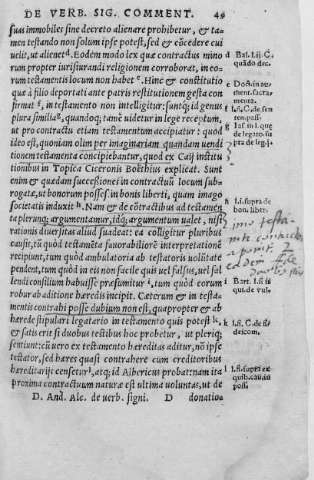 DE VERB. SIG. COMMENT. 49
suas immobiles sine decreto alienare prohibetur, & ta-
men testando non solum ipse potest, sed & cõcedere cui
uelit, ut alienet d Eodem modo lex quæ contractus mino
rum propter iurisiurandi religionem corroborat, in eo-
rum testamentis locum non habet e. Hinc & constitutio
quæ à filio deportati ante patris restitutionem gesta con-
firmat f, in testamento non intelligitur: suntq; id genus
plura similia g. quandoq; tamē uidetur in lege receptum,
ut pro contractu etiam testamentum accipiatur: quod
ideo est, quoniam olim per imaginariam quandam vendi
tionem testamenta concipiebantur, quod ex Caij institu
tionibus in Topica Ciceronis Boëthius explicat. Sunt
enim & quædam successiones in contractuũ locum subro-
rogatæ, ut bonorum posses. in bonis liberti, quam imago
societatis induxit h. Nam & de cõtractibus ad testamen
ta plerunq; argumentamur, idq; argumentum ualet, nisi
rationis diuersitas aliud suadeat: ea colligitur pluribus
causis, tũ quòd testamēta fauorabiliorē interpretationē
recipiunt, tum quòd ambulatoria ab testatoris uolūtate
pendent, tum quòd in eis non facile quis uel falsus, uel sal
lendi consilium habuisse præsumitur i, tum quòd eorum
robur ab aditione hæredis incipit. Cæterum & in testa-
mentis contrahi posse dubium non est, quapropter & ab
hærede stipulari legatario in testamento quis potest k,
& satis erit si duobus testibus hoc probetur, ut pleriq;
sentiunt: cũ uero ex testamento hæreditas aditur, nõ ipse
testator, sed hæres quasi contrahere cum creditoribus
hæreditarijs censetur l, atq; id Albericus probat: nam ita
proxima contractuum naturæ est ultima uoluntas, ut de
D. And. Alc. de verb. signi. D donatio
d Bal. l. ij. C.
quādo dec.
e
f
g
h l. si. supra de
bon. liber.
i Bart. l. si is
qui. de vul.
k l. si. C. de fi
deicom.
l
posses.